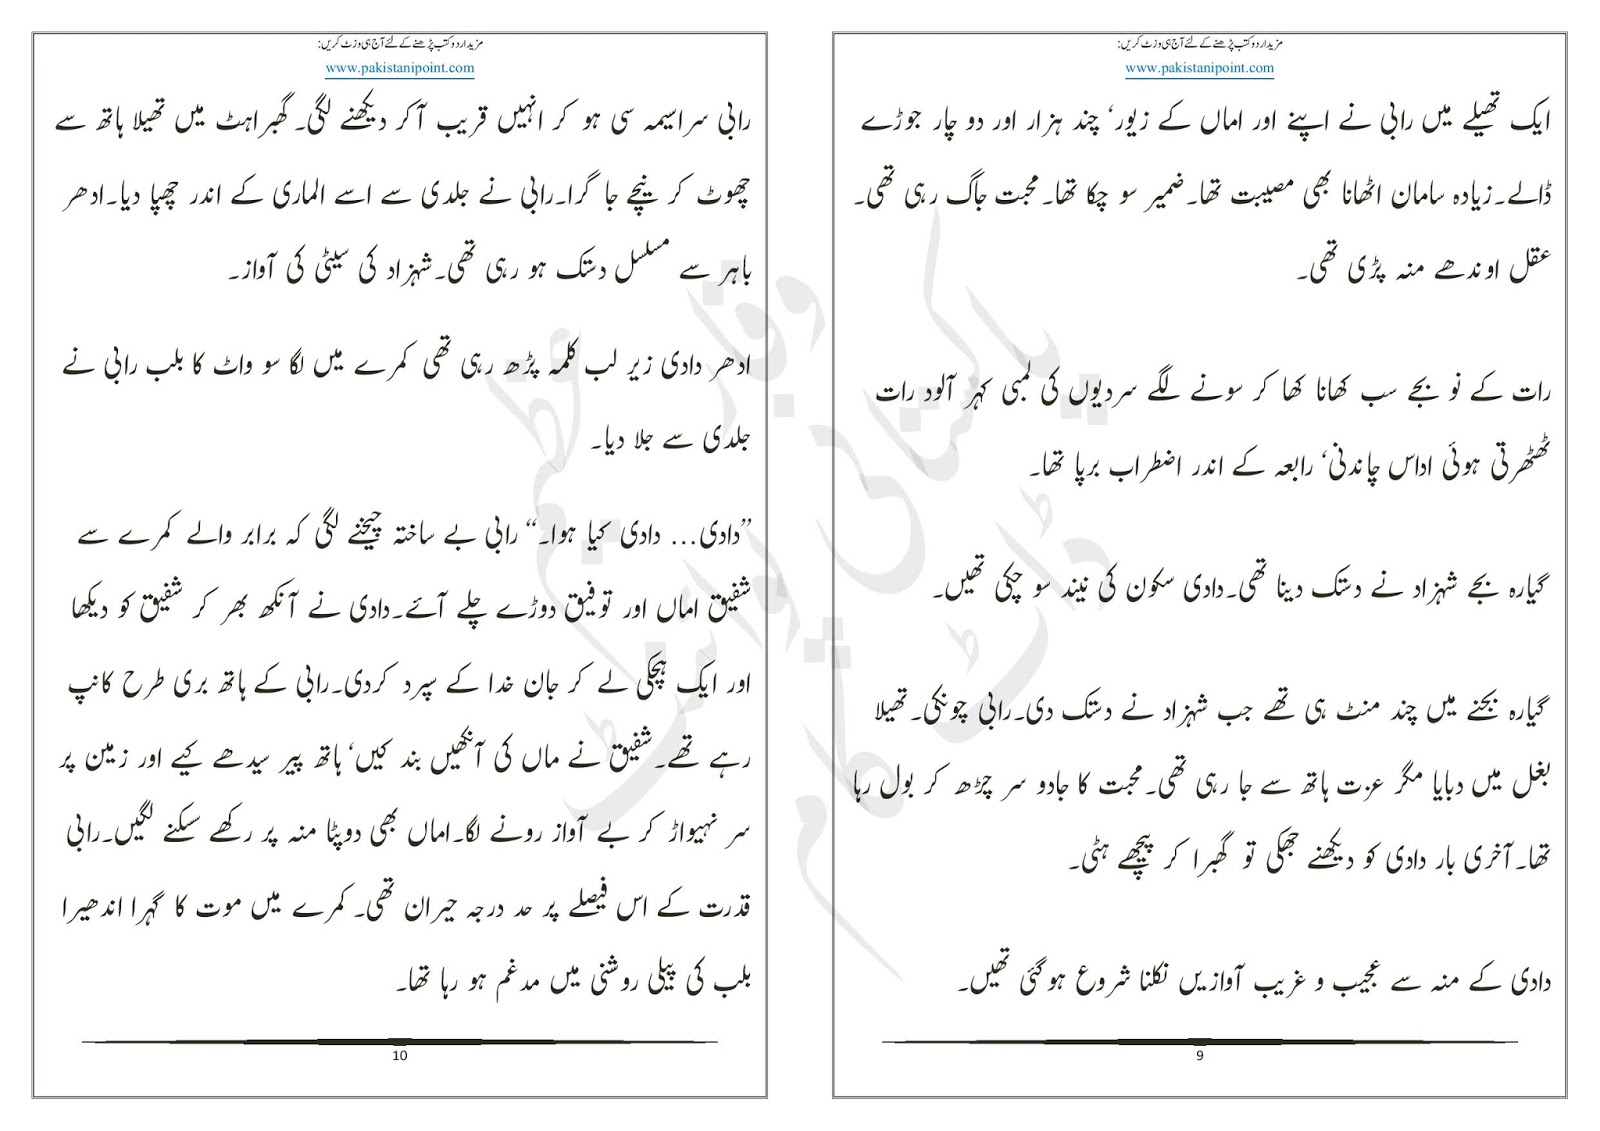 مزید اردو کتب پڑھنے کے لئے آج ہی وزٹ کریں:
www.pakistanipoint.com
ایک تھیلے میں رابی نے اپنے اور اماں کے زیور، چند ہزار اور دو چار جوڑے
ڈالے۔زیادہ سامان اٹھانا بھی مصیبت تھا۔ضمیر سو چکا تھا۔محبت جاگ رہی تھی۔
عقل اوندھے منہ پڑی تھی۔
رات کے نو بجے سب کھانا کھا کر سونے لگے سردیوں کی لمبی کہر آلود رات
ٹھٹھرتی ہوئی اداس چاندنی، رابعہ کے اندر اضطراب برپا تھا۔
گیارہ بجے شہزاد نے دستک دینا تھی۔دادی سکون کی نیند سو چکی تھیں۔
گیارہ بجنے میں چند منٹ ہی تھے جب شہزاد نے دستک دی۔رابی چونکی۔تھیلا
بغل میں دبایا مگر عزت ہاتھ سے جا رہی تھی۔محبت کا جادو سر چڑھ کر بول رہا
تھا۔آخری بار دادی کو دیکھنے جھکی تو گھبرا کر پیچھے ہٹی۔
دادی کے منہ سے عجیب و غریب آوازیں نکلنا شروع ہوگئی تھیں۔
9
مزید اردو کتب پڑھنے کے لئے آج ہی وزٹ کریں:
www.pakistanipoint.com
رابی سراسیمہ سی ہو کر انہیں قریب آکر دیکھنے لگی۔گھبراہٹ میں تھیلا ہاتھ سے
چھوٹ کر نیچے جا گرا۔رابی نے جلدی سے اسے الماری کے اندر چھپا دیا۔ادھر
باہر سے مسلسل دستک ہو رہی تھی۔شہزاد کی سیٹی کی آواز۔
ادھر دادی زیر لب کلمہ پڑھ رہی تھی کمرے میں لگا سو واٹ کا بلب رابی نے
جلدی سے جلا دیا۔
”دادی... دادی کیا ہوا۔“ رابی بے ساختہ چیخنے لگی کہ برابر والے کمرے سے
شفیق اماں اور توفیق دوڑے چلے آئے۔دادی نے آنکھ بھر کر شفیق کو دیکھا
اور ایک ہچکی لے کر جان خدا کے سپرد کردی۔رابی کے ہاتھ بری طرح کانپ
رہے تھے۔شفیق نے ماں کی آنکھیں بند کیں، ہاتھ پیر سیدھے کیے اور زمین پر
سر نہیواڑ کر بے آواز رونے لگا۔اماں بھی دوپٹا منہ پر رکھے سسکنے لگیں۔رابی
قدرت کے اس فیصلے پر حد درجہ حیران تھی۔کمرے میں موت کا گہرا اندھیرا
بلب کی پیلی روشنی میں مدغم ہو رہا تھا۔
10
پاکستانی پوائنٹ ڈاٹ کام
وقار عظیم